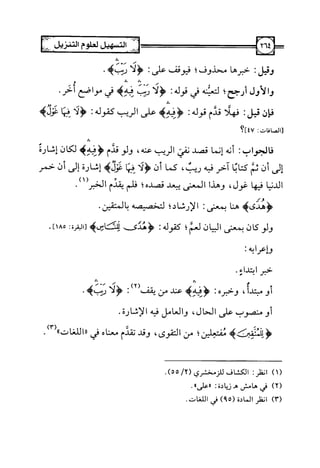 ٢٦٤
التسهيل لعلوم التنزيل
وقيل: خبرها محذوف؛ فيوقف على: ﴿لَا رَيْبَ﴾.
والأول أرجح؛ لتعيُّنه في قوله: ﴿لَا رَيْبَ فِيهِ﴾ في مواضع أُخَر.
فإن قيل: فهلَّا قدَّم قوله: ﴿فِيهِ﴾ على الريب كقوله: ﴿لَا فِيهَا غَوْلٌ﴾
[الصافات: ٤٧]؟
فالجواب: أنه إنما قصد نفيَ الريب عنه، ولو قدَّم ﴿فِيهِ﴾ لكان إشارةً
إلى أن ثَمَّ كتابًا آخر فيه ريبٌ، كما أن ﴿لَا فِيهَا غَوْلٌ﴾ إشارة إلى أن خمر
الدنيا فيها غول، وهذا المعنى يبعد قصده؛ فلم يقدِّم الخبر(١).
﴿هُدًى﴾ هنا بمعنى: الإرشاد؛ لتخصيصه بالمتقين.
ولو كان بمعنى البيان لعمَّ؛ كقوله: ﴿هُدًى لِلنَّاسِ﴾ [البقرة: ١٨٥].
وإعرابه:
خبر ابتداءٍ.
أو مبتدأٌ، وخبره: ﴿فِيهِ﴾ عند من يقف(٢): ﴿لَا رَيْبَ﴾.
أو منصوب على الحال، والعامل فيه الإشارة.
﴿لِلْمُتَّقِينَ﴾ مُفتعِلين؛ من التقوى، وقد تقدَّم معناه في «اللغات»(٣).
(١) انظر: الكشاف للزمخشري (٢/ ٥٥).
(٢) في هامش هـ زيادة: «على».
(٣) انظر المادة (٩٥) في اللغات.